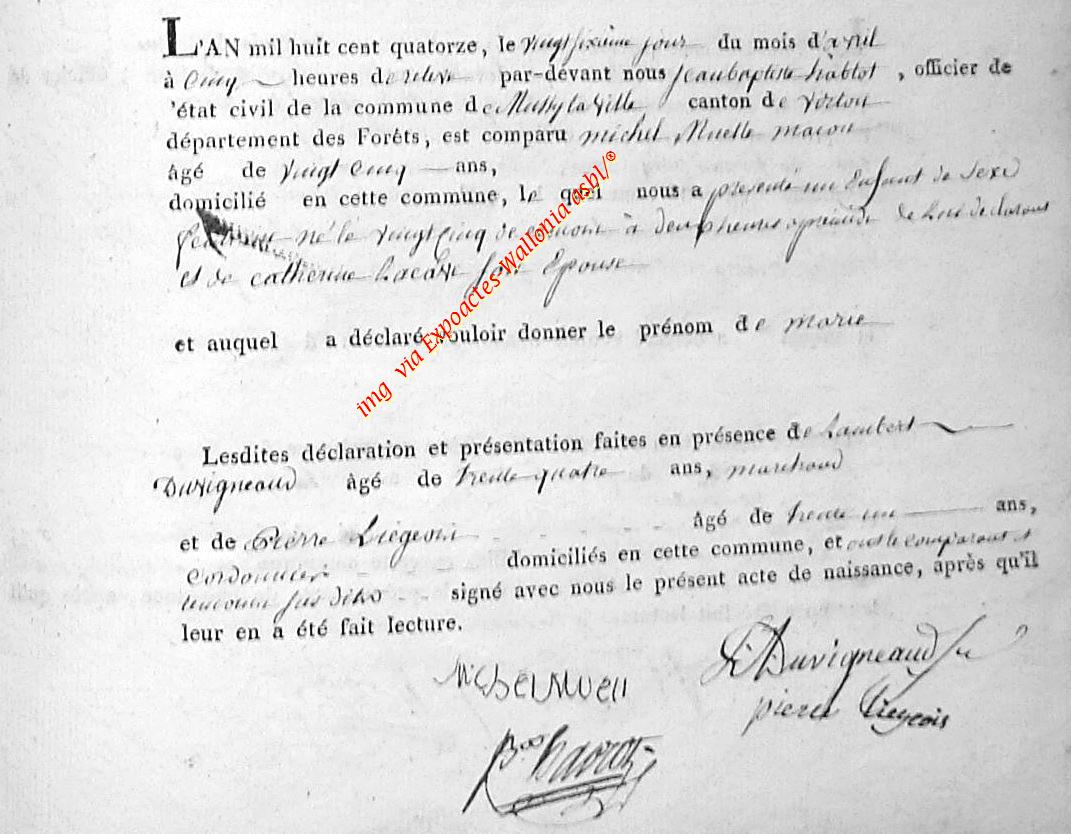 L'AN mil huit cent quatorze, le vingt sixieme jour du mois d'avril
à Cinq heures de relevé par-devant nous Jean baptiste hablot, officier de
'état civil de la commune de Mussy la ville canton de Virton
département des Forêts, est comparu michel Muelle maçon
âgé de vingt Cinq ans,
domicilié en cette commune, le quel nous a presenté un Enfant de Sexe
né le vingt Cinq de ce mois à deux heures de lui declarant
et de catherine son Epouse
et auquel a déclaré vouloir donner le prénom de marie
Lesdites déclaration et présentation faites en présence de Lambert
Duvigneaud âgé de trente quatre ans, marchand
et de Pierre Liegeois âgé de trente un ans,
Cordonnier domiciliés en cette commune, et ont le comparant et
temoins susdits signé avec nous le présent acte de naissance, après qu'il
leur en a été fait lecture.
Michel Muell
L Duvigneaud
pierre Liegeois
img via Expoactes-Wallonia asbl/®